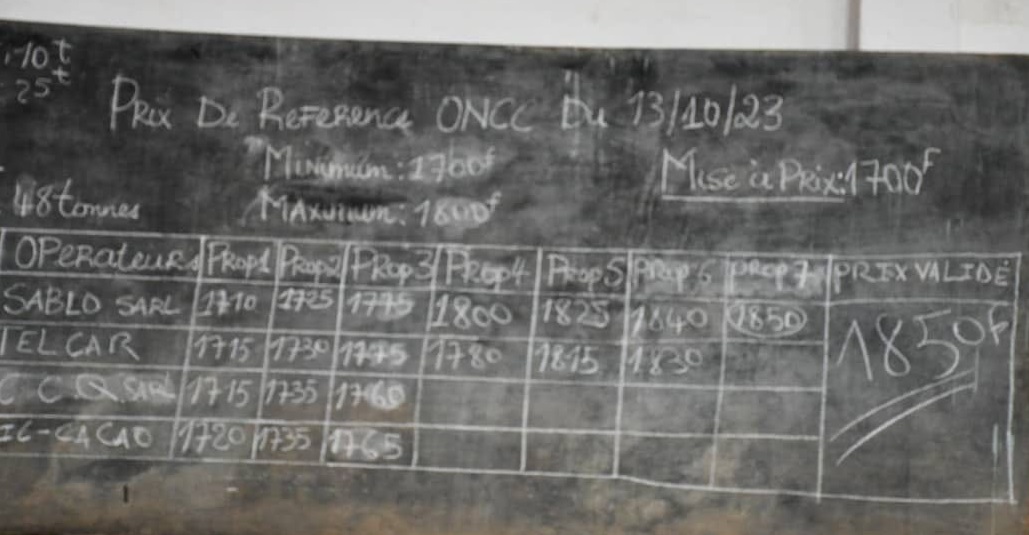 10t
25t
Prix De Reference ONCC Du 13/10/23
Minimum: 1700f
Mise à Prix: 1700F
48 tonnes
Maximum: 1800f
OPERateurs Prop1 Prop2 Prop3 Prop4 Prop5 Prop6 prop7 PRIX VALIDÉ
SABLO SARL 1710 1725 1775 1800 1825 1840 1850 1850f
TELCAR 1715 1730 1775 1780 1815 1830
C C Q SARL 1715 1735 1760
CACAO 1720 1735 1765